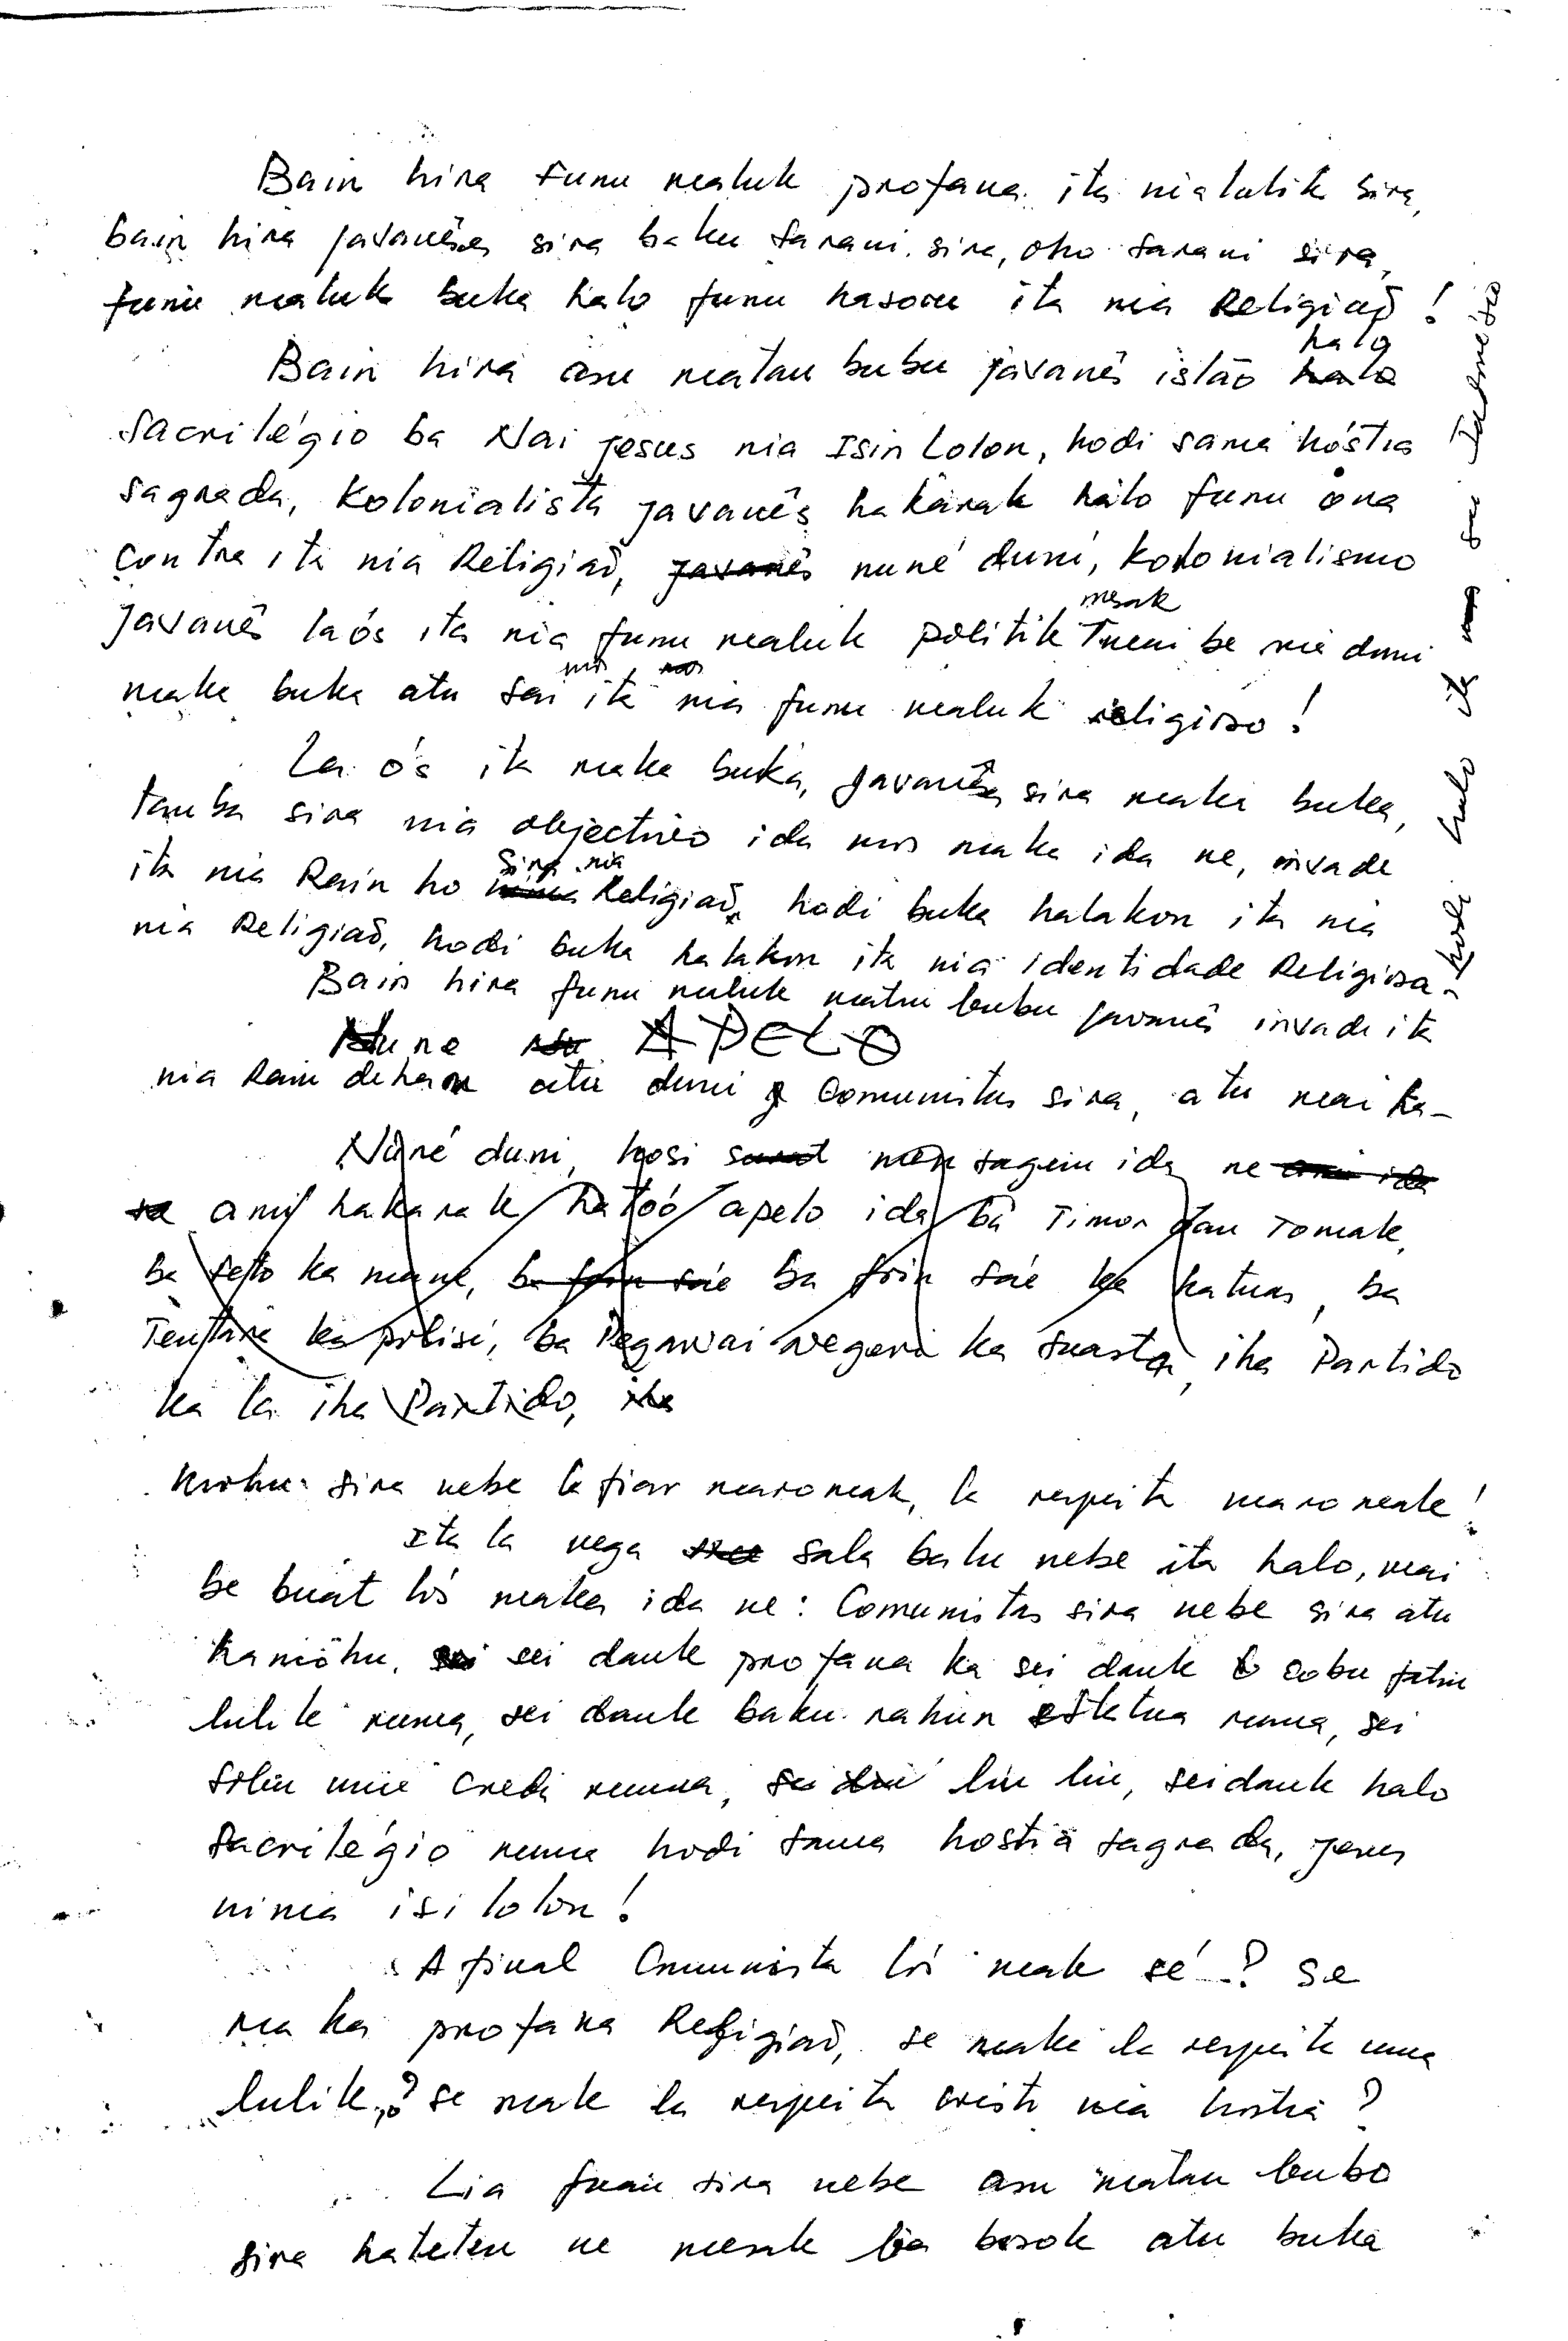 Bain hira funu maluk profana ita nia lulik sira,
bain hira javanêses sira baku sarani sira, oho sarani sira,
funu maluk buka halo funu hasoru ita nia Religiaõ!
Bain hira asu matan bubu javanês islão halo
sacrilégio ba Nai Jesus nia Isin Lolon, hodi sama hóstia
sagrada, Kolonialista javanês hakarak halo funu ona
contra ita nia Religiaõ, javanês nuné duni, kolonialismo
javanês laós ita nia funu maluk politik mesak mai be nia duni
maka buka atu sai mos ita nia funu maluk religioso!
La ós ita maka buka, javanês sira maka buka,
tamba sira nia objectivo ida mos maka ida ne, invade
ita nia Rain ho sira nia Religiaõ, hodi buka halakon ita nia
nia Religiaõ, hodi buka halakon ita nia identidade Religiosa
hodi halo ita sai
Bain hira funu maluk matan bubu javanês invade ita
Nune APELO
nia Rain dehan atu duni Comunistas sira, atu mai ha-
Nuné duni, hosi surat mensagem ida ne ami ida
ne ami hakarak hatoó apelo ida ba Timor oan tomak,
ba feto ka mane, ba foin saé ba foin saé ka katuas, ba
Tentara ka polisi, ba Pegawai Negeri ka suasta, iha Partido
ka la iha Partido, iha
mohu sira nebe la fiar maromak, la respeita maromak!
Ita la nega sala balu nebe ita halo, mai
be buat lós maka ida ne: Comunistas sira nebe sira atu
hamohu, sei sei dauk profana ka sei dauk sobu fatin
lulik ruma, sei dauk baku rahun estatua ruma, sei
solu mie creda ruma, liu liu, seidauk halo
sacrilégio ruma hodi sama hostia sagrada, Jesus
ninia isi lolon!
Afinal Comunista lós mak sé? Se
maka profana Religiaõ, se maka la respeita uma
lulik? se mak la respeita cristo nia hostia?
Lia fuan sira nebe asu matan bubo
sira hateten ne mesak ba bosok atu buka